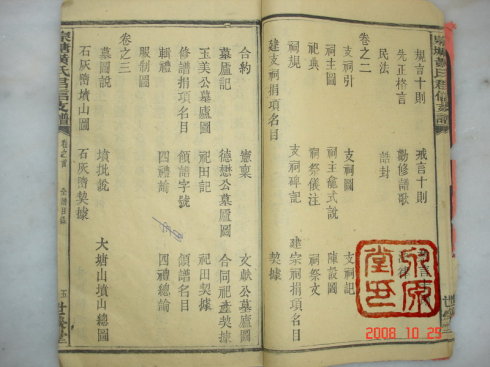 規言十則 戒言十則
先正格言 勸修譜歌
民法 誥封
卷之二
支祠引 支祠圖 支祠記
祠主圖 祠主龕式說 陳設圖
祀典 祠祭儀注 祠祭文
祠規 支祠碑記 建宗祠捐項名目
建支祠捐項名目 契據
合約 憲稟 文獻公
墓廬記 德懋公墓廬圖 合同祀產契據
玉美公墓廬圖 祀田記 祀田契據
修譜捐項名目 領譜字號 領譜名目
輯禮 四禮論 四禮總論
服制圖
卷之三
墓圖說 墳批說 大塘山墳山總圖
石灰隋墳山圖 石灰隋契據
黃氏君信支譜 卷之首 全譜目錄 五
2008 10 29